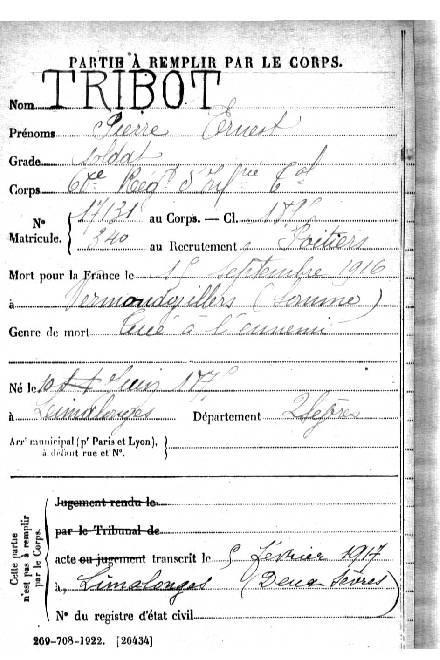 PARTIE À REMPLIR PAR LE CORPS.
Nom TRIBOT
Prénoms Pierre Ernest
Grade soldat
Corps Regt d'Inf rie Col
N° Matricule. { 17131 au Corps. — Cl.
340 au Recrutement Poitiers
Mort pour la France le Septembre 1916
à Vermandovillers (Somme)
Genre de mort Tué à l'ennemi
Né le Juin
à Limalonges Département 2 Sèvres
Arrt municipal (pr Paris et Lyon), à défaut rue et N°. }
Cette partie n'est pas à remplir par le Corps.
Jugement rendu le
par le Tribunal de
acte ou jugement transcrit le 5 février 1917
à Limalonges (Deux Sèvres)
N° du registre d'état civil
269-708-1922. [26434]